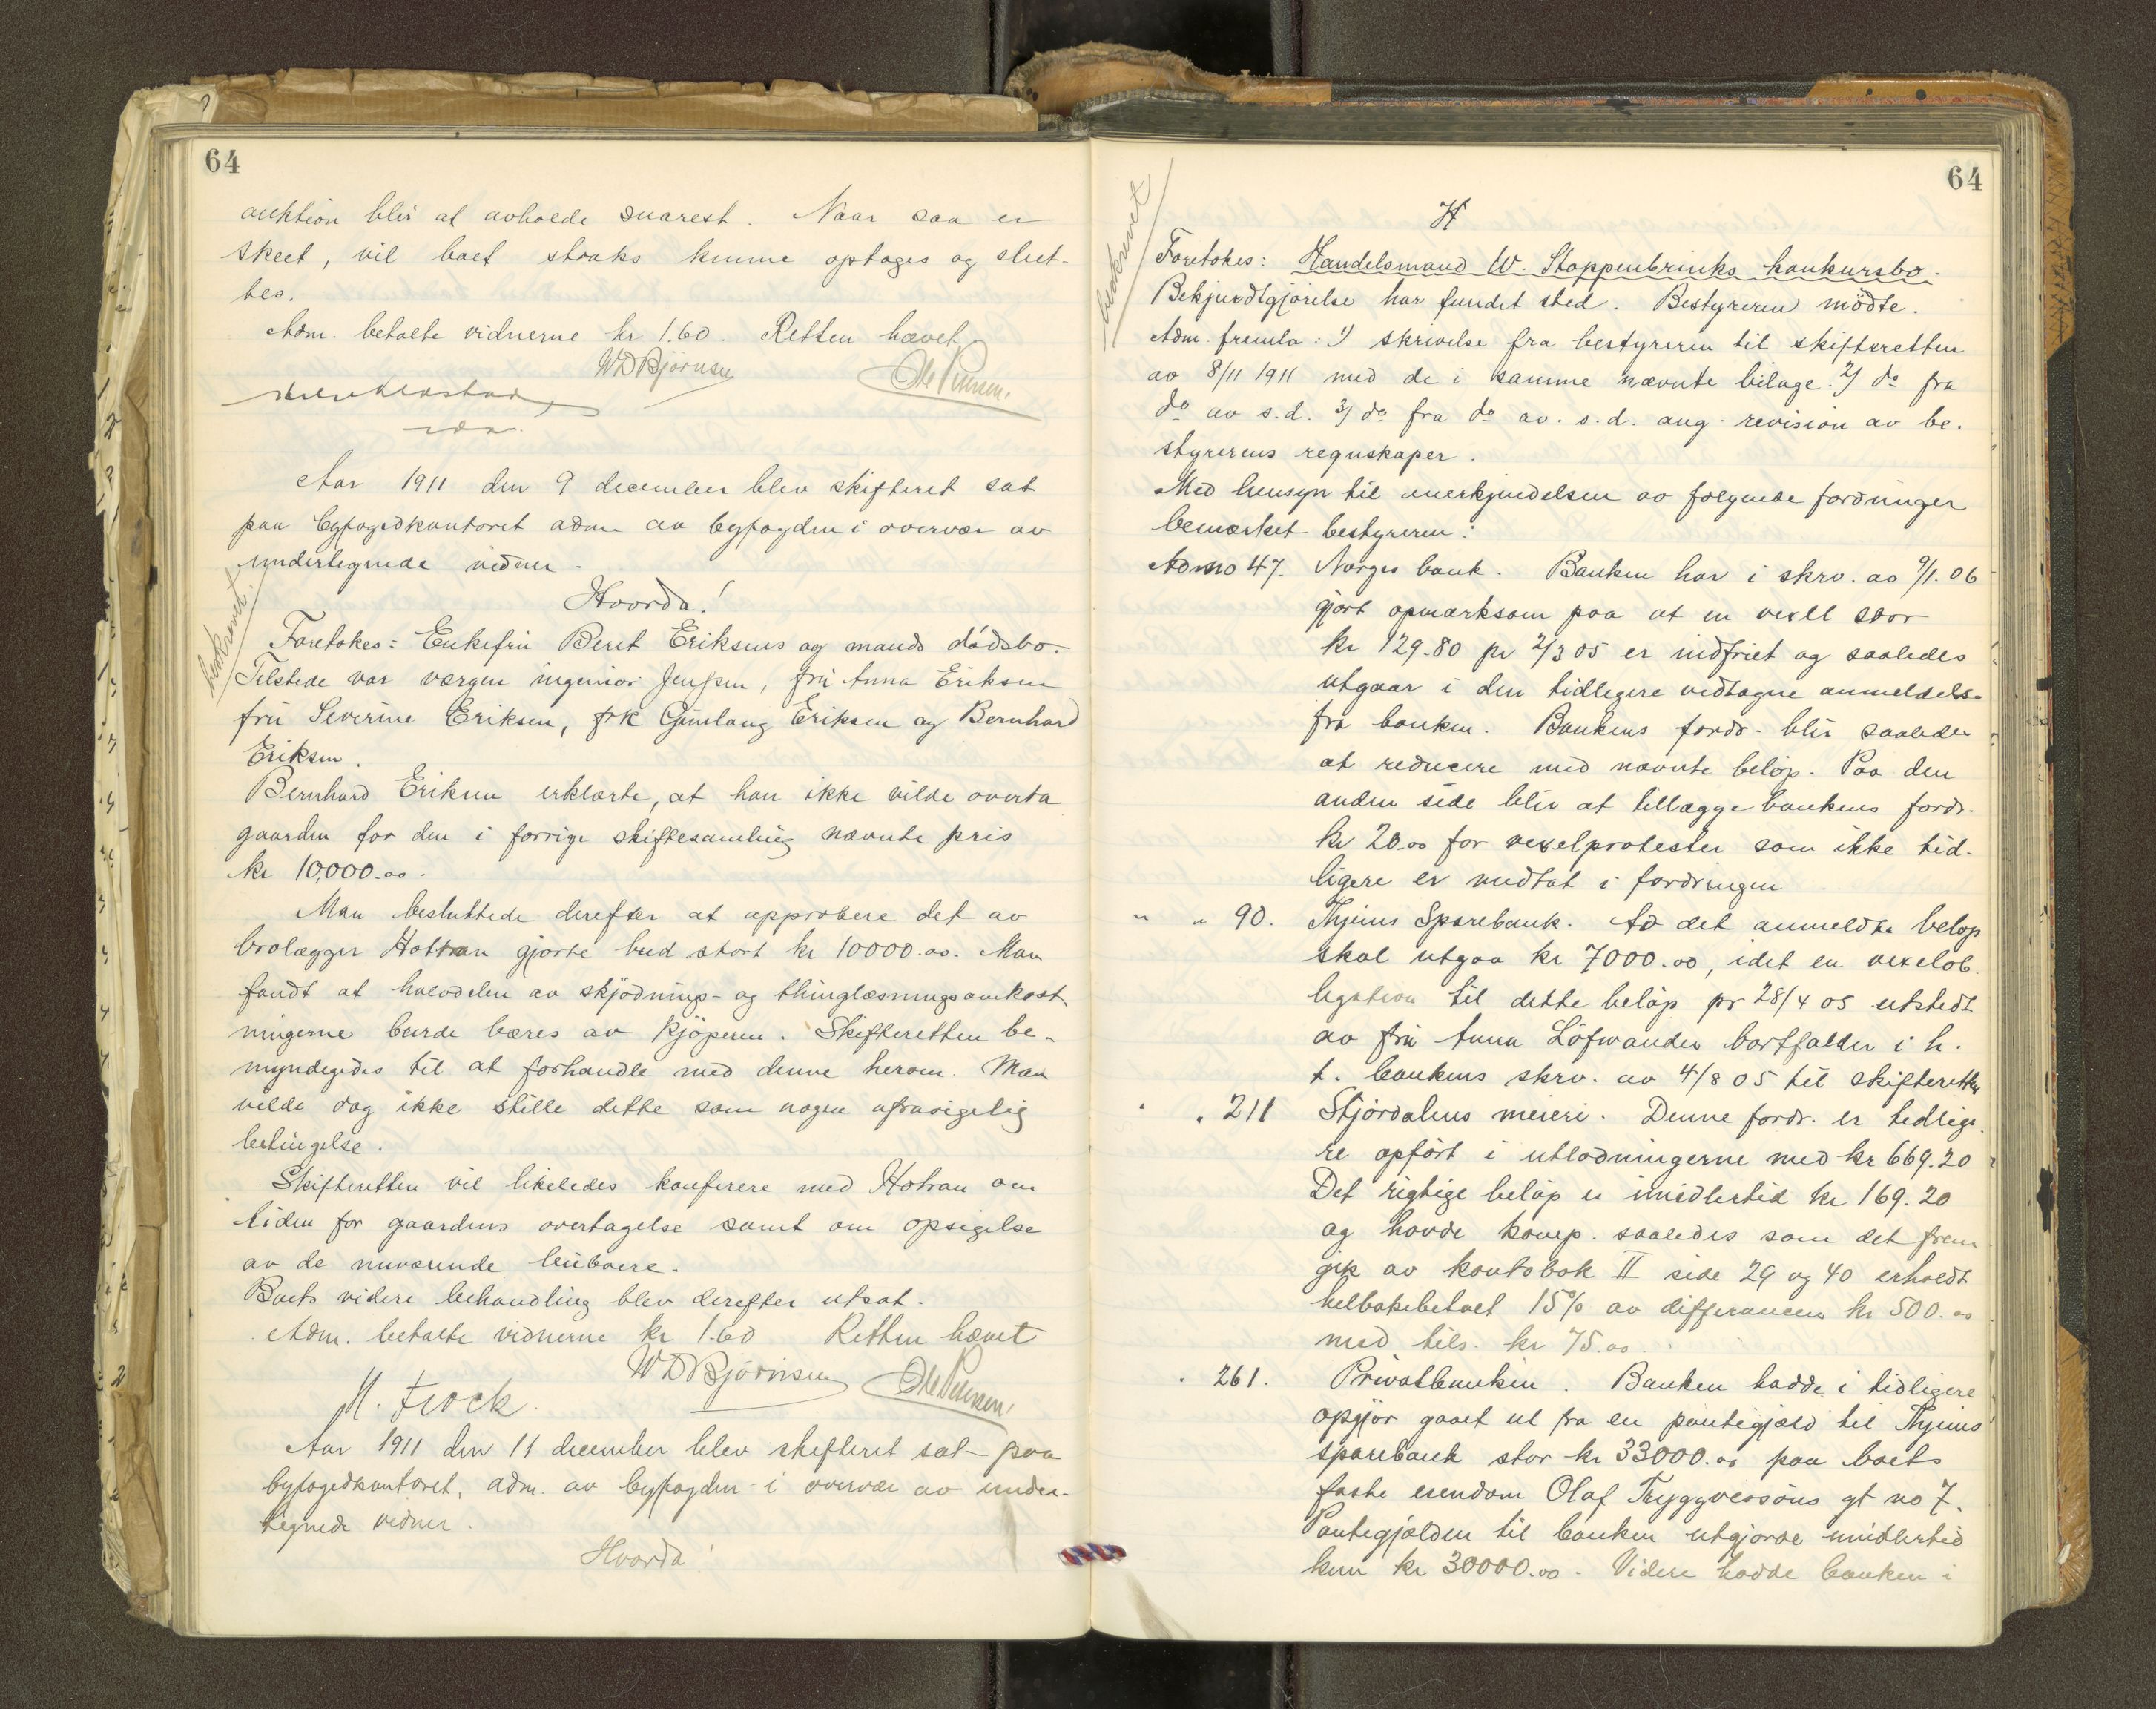 64
auktion blir at avholde snarest. Naar saa er
skeet, vil boet straks kunne optages og slut-
tes.
Adm. betalte vidnerne kr 1.60. Retten hævet
WDBjørnsen Ole Pedersen.
Aar 1911 den 9 december blev skifteret sat
paa byfogedkontoret adm. av byfogden i overvær av
undertegnede vidner.
Hvorda!
beskrevet.
Foretokes: Enkefru Beret Eriksens og mands dödsbo.
Tilstede var værgen ingeniör Jenssen, fru Anna Eriksen
fru Severine Eriksen, frk Gunlaug Eriksen og Bernhard
Eriksen.
Bernhard Eriksen erklærte, at han ikke vilde overta
gaarden for den i forrige skiftesamling nævnte pris
kr 10,000.00.
Man besluttede derefter at approbere det av
brolægger Hotran gjorte bud stort kr 10000.00. Man
fandt at halvdelen av skjödnings- og thinglæsningsomkost
ningerne burde bæres av kjöperen. Skifteretten be-
myndigedes til at forhandle med denne herom. Man
vilde dog ikke stille dette som nogen ufravigelig
betingelse.
Skifteretten vil likeledes konferere med Hotran om
tiden for gaardens overtagelse samt om opsigelse
av de nuværende leieboere.
Boets videre behandling blev derefter utsat.
Adm. betalte vidnerne kr 1.60 Retten hævet
WDBjørnsen Ole Pedersen.
M. Frock.
Aar 1911 den 11 december blev skifteret sat paa
byfogedkontoret, adm. av byfogden i overvær av under-
tegnede vidner.
Hvorda!
64
beskrevet
H
Foretokes: Handelsmand W. Stoppenbrinks konkursbo.
Bekjendtgjörelse har fundet sted. Bestyreren mödte.
Adm. fremla: 1) skrivelse fra bestyreren til skifteretten
av 8/11 1911 med de i samme nævnte bilage. 2) do fra
do av s.d. 3) do fra do av. s.d. ang. revision av be-
styrerens regnskaper.
Med hensyn til anerkjendelsen av fölgende fordringer
bemærket bestyreren:
Ad no 47. Norges bank. Banken har i skrv. av 9/1.06
gjort opmærksom paa at en vexel stor
kr 129.80 pr 2/3 05 er indfriet og saaledes
utgaar i den tidligere vedtagne anmeldelse
fra banken. Bankens fordr. blir saaledes
at reducere med nævnte belöp. Paa den
anden side blir at tillægge bankens fordr.
kr 20.00 for vexelprotester som ikke tid-
ligere er medtat i fordringen
" " 90. Thjems Sparebank. Av det anmeldte belöp
skal utgaa kr 7000.00, idet en vexelob
ligation til dette belöp pr 28/4 05 utstedt
av fru Anna Löfwander bortfalder i h.
t. bankens skrv. av 4/8 05 til skifteretten
" " 211 Stjördalens meieri. Denne fordr. er tidlige
re opfört i utlodningerne med kr 669.20
Det rigtige belöp er imidlertid kr 169.20
og havde komp. saaledes som det frem
gik av kontobok II side 29 og 40 erholdt
tilbakebetalt 15% av differancen kr 500.00
med tils. kr 75.00.
" 261. Privatbanken. Banken hadde i tidligere
opgjör gaaet ut fra en pantegjæld til Thjems
sparebank stor kr 33000.00 paa boets
faste eiendom Olaf Tryggvesöns gt no 7.
Pantegjælden til banken utgjorde imidlertid
kun kr 30000.00. Videre hadde banken i